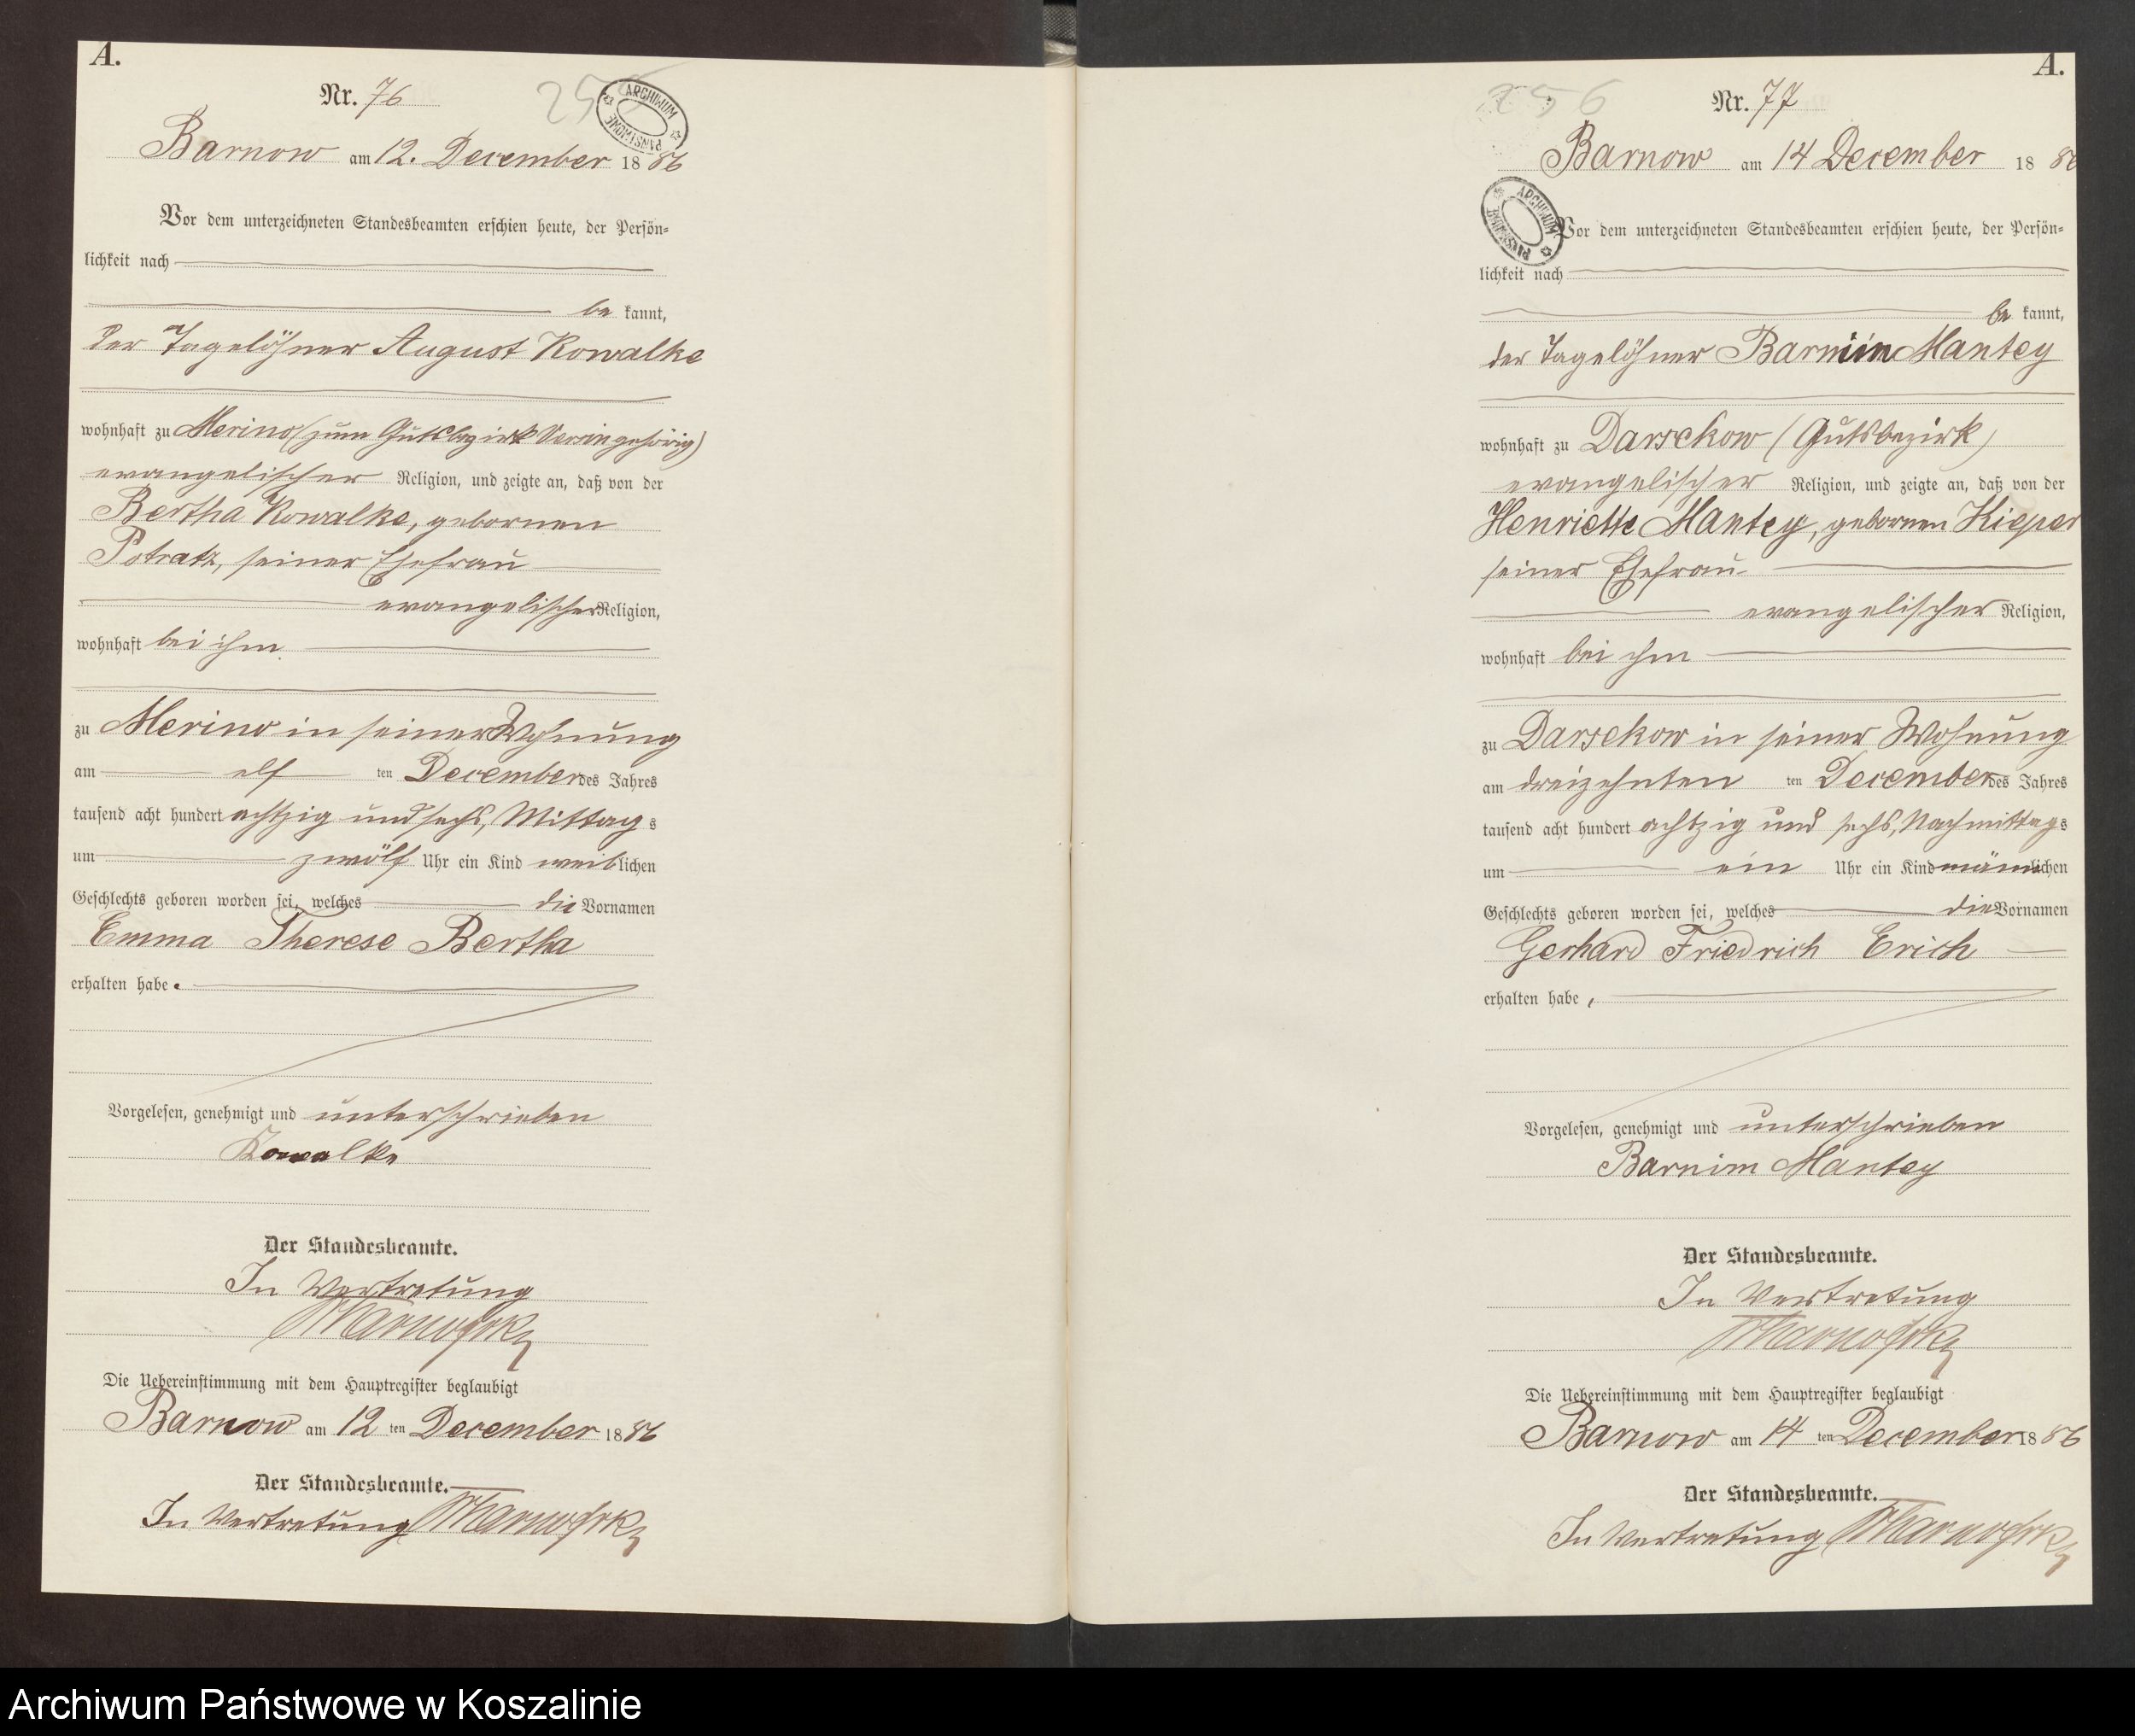 A.
Nr. 76
ARCHIWUM PAŃSTWOWE
Barnow am 12. December 1886
Vor dem unterzeichneten Standesbeamten erschien heute, der Persön-
lichkeit nach
be kannt,
der Tagelöhner August Kowalke
wohnhaft zu Merino (zum Gutsbezirk Versin gehörig)
evangelischer Religion, und zeigte an, daß von der
Bertha Kowalke, gebornen
Potratz, seiner Ehefrau
evangelischer Religion,
wohnhaft bei ihm
zu Merino in seiner Wohnung
am elf ten December des Jahres
tausend acht hundert achtzig und sechs, Mittags
um zwölf Uhr ein Kind weiblichen
Geschlechts geboren worden sei, welches die Vornamen
Emma Therese Bertha
erhalten habe.
Vorgelesen, genehmigt und unterschrieben
Kowalke
Der Standesbeamte.
In Vertretung
Die Uebereinstimmung mit dem Hauptregister beglaubigt
Barnow am 12 ten December 1886
Der Standesbeamte.
In Vertretung
A.
256
Nr. 77
Barnow am 14 December 1886
ARCHIWUM PAŃSTWOWE
Vor dem unterzeichneten Standesbeamten erschien heute, der Persön-
lichkeit nach
be kannt,
der Tagelöhner Barnim Mantey
wohnhaft zu Darsekow (Gutsbezirk)
evangelischer Religion, und zeigte an, daß von der
Henriette Mantey, gebornen Kieper
seiner Ehefrau
evangelischer Religion,
wohnhaft bei ihm
zu Darsekow in seiner Wohnung
am dreizehnten ten December des Jahres
tausend acht hundert achtzig und sechs, Nachmittags
um ein Uhr ein Kind männlichen
Geschlechts geboren worden sei, welches die Vornamen
Gerhard Friedrich Erich
erhalten habe,
Vorgelesen, genehmigt und unterschrieben
Barnim Mantey
Der Standesbeamte.
In Vertretung
Die Uebereinstimmung mit dem Hauptregister beglaubigt
Barnow am 14 ten December 1886
Der Standesbeamte.
In Vertretung
Archiwum Państwowe w Koszalinie